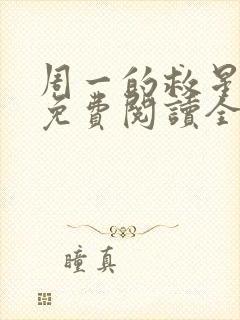 周一的救星
免費閱讀全
瞳真